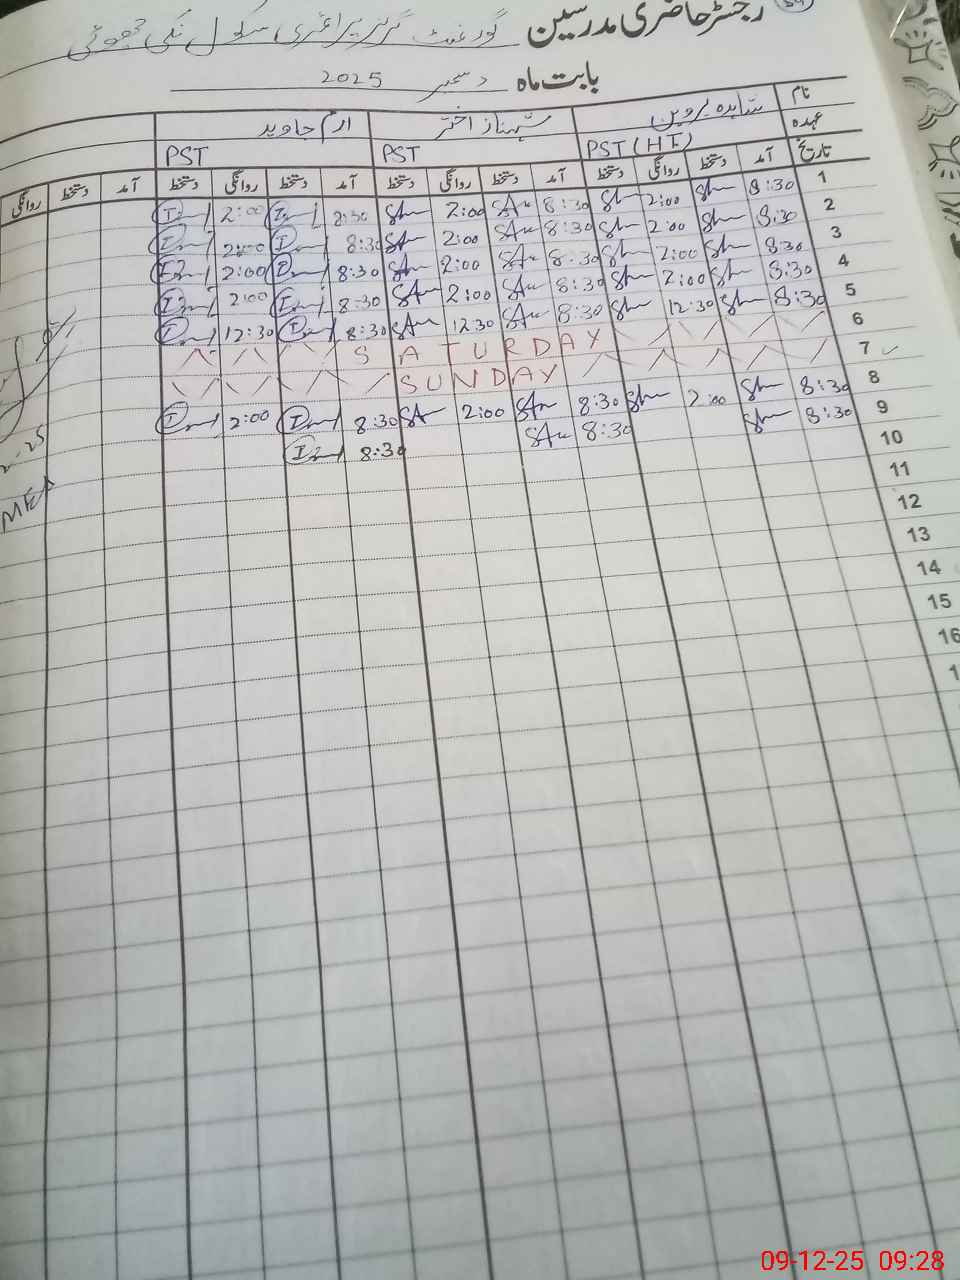 رجسٹر حاضری مدرسین گورنمنٹ گرلز پرائمری سکول نکی
بابت ماہ دسمبر 2025
نام شاہدہ پروین شہناز اختر ارم جاوید
عہدہ PST (HT) PST PST
تاریخ آمد دستخط روانگی دستخط آمد دستخط روانگی دستخط آمد دستخط روانگی دستخط آمد دستخط روانگی
1 8:30 Sh 2:00 Sh 8:30 SA 2:00 Sh 8:30 2:00
2 8:30 Sh 2:00 Sh 8:30 SA 2:00 SA 8:30 2:00
3 8:30 Sh 2:00 Sh 8:30 SA 2:00 SA 8:30 2:00
4 8:30 Sh 2:00 Sh 8:30 SA 2:00 SA 8:30 2:00
5 8:30 Sh 12:30 Sh 8:30 SA 12:30 SA 8:30 12:30
6 SATURDAY
7 SUNDAY
8 8:30 Sh 2:00 Sh 8:30 SA 2:00 SA 8:30 2:00
9 8:30 Sh 8:30 SA 8:30
10
11
12
13
14
15
16
MEA
09-12-25 09:28